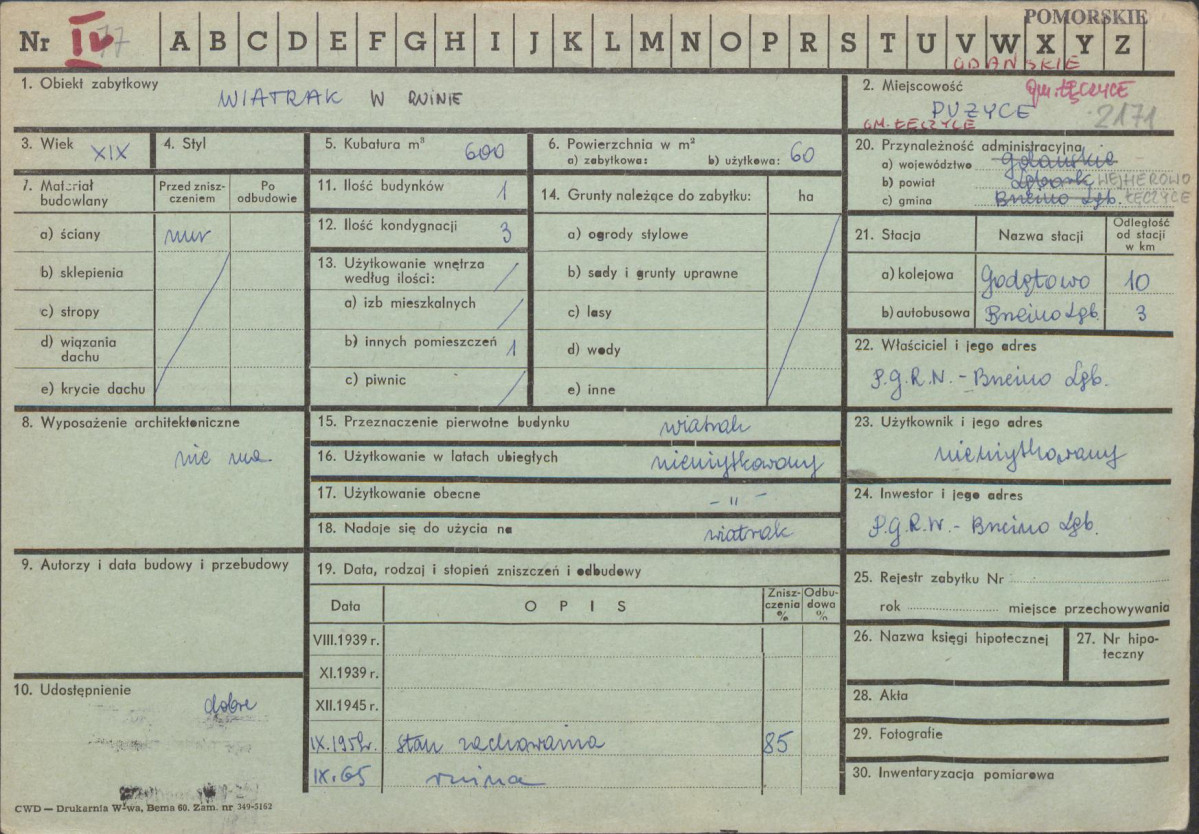 POMORSKIE
Nr IV 77 A B C D E F G H I J K L M N O P R S T U V W X Y Z
GDAŃSKIE
1. Obiekt zabytkowy
WIATRAK W RUINIE
2. Miejscowość gm. ŁĘCZYCE
PUZYCE
GM. ŁĘCZYCE 2171
3. Wiek XIX
4. Styl
5. Kubatura w m³ 600
6. Powierzchnia w m²
a) zabytkowa: b) użytkowa: 60
7. Materiał budowlany
Przed zniszczeniem
Po odbudowie
a) ściany mur
b) sklepienia
c) stropy
d) wiązania dachu
e) krycie dachu
11. Ilość budynków 1
12. Ilość kondygnacji 3
13. Użytkowanie wnętrza
według ilości:
a) izb mieszkalnych
b) innych pomieszczeń 1
c) piwnic
14. Grunty należące do zabytku: ha
a) ogrody stylowe
b) sady i grunty uprawne
c) lasy
d) wody
e) inne
20. Przynależność administracyjna
a) województwo Gdańskie
b) powiat Lębork WEJHEROWO
c) gmina Bneino Lęb. ŁĘCZYCE
21. Stacja
Nazwa stacji
Odległość
od stacji
w km
a) kolejowa Godętowo 10
b) autobusowa Bneino Lęb. 3
22. Właściciel i jego adres
P.G.R.N. - Bneino Lęb.
8. Wyposażenie architektoniczne
nie ma
15. Przeznaczenie pierwotne budynku wiatrak
16. Użytkowanie w latach ubiegłych nieużytkowany
17. Użytkowanie obecne - " -
18. Nadaje się do użycia na wiatrak
23. Użytkownik i jego adres
nieużytkowany
24. Inwestor i jego adres
P.G.R.N. - Bneino Lęb.
9. Autorzy i data budowy i przebudowy
19. Data, rodzaj i stopień zniszczeń i odbudowy
Data
OPIS
Zniszczenia
%
Odbudowa
%
VIII.1939 r.
XI.1939 r.
XII.1945 r.
IX.1959r. stan zachowania 85
IX.65 ruina
10. Udostępnienie
dobre
25. Rejestr zabytku Nr
rok miejsce przechowywania
26. Nazwa księgi hipotecznej
27. Nr hipoteczny
28. Akta
29. Fotografie
30. Inwentaryzacja pomiarowa
CWD — Drukarnia W-wa, Bema 60. Zam. nr 349-5162